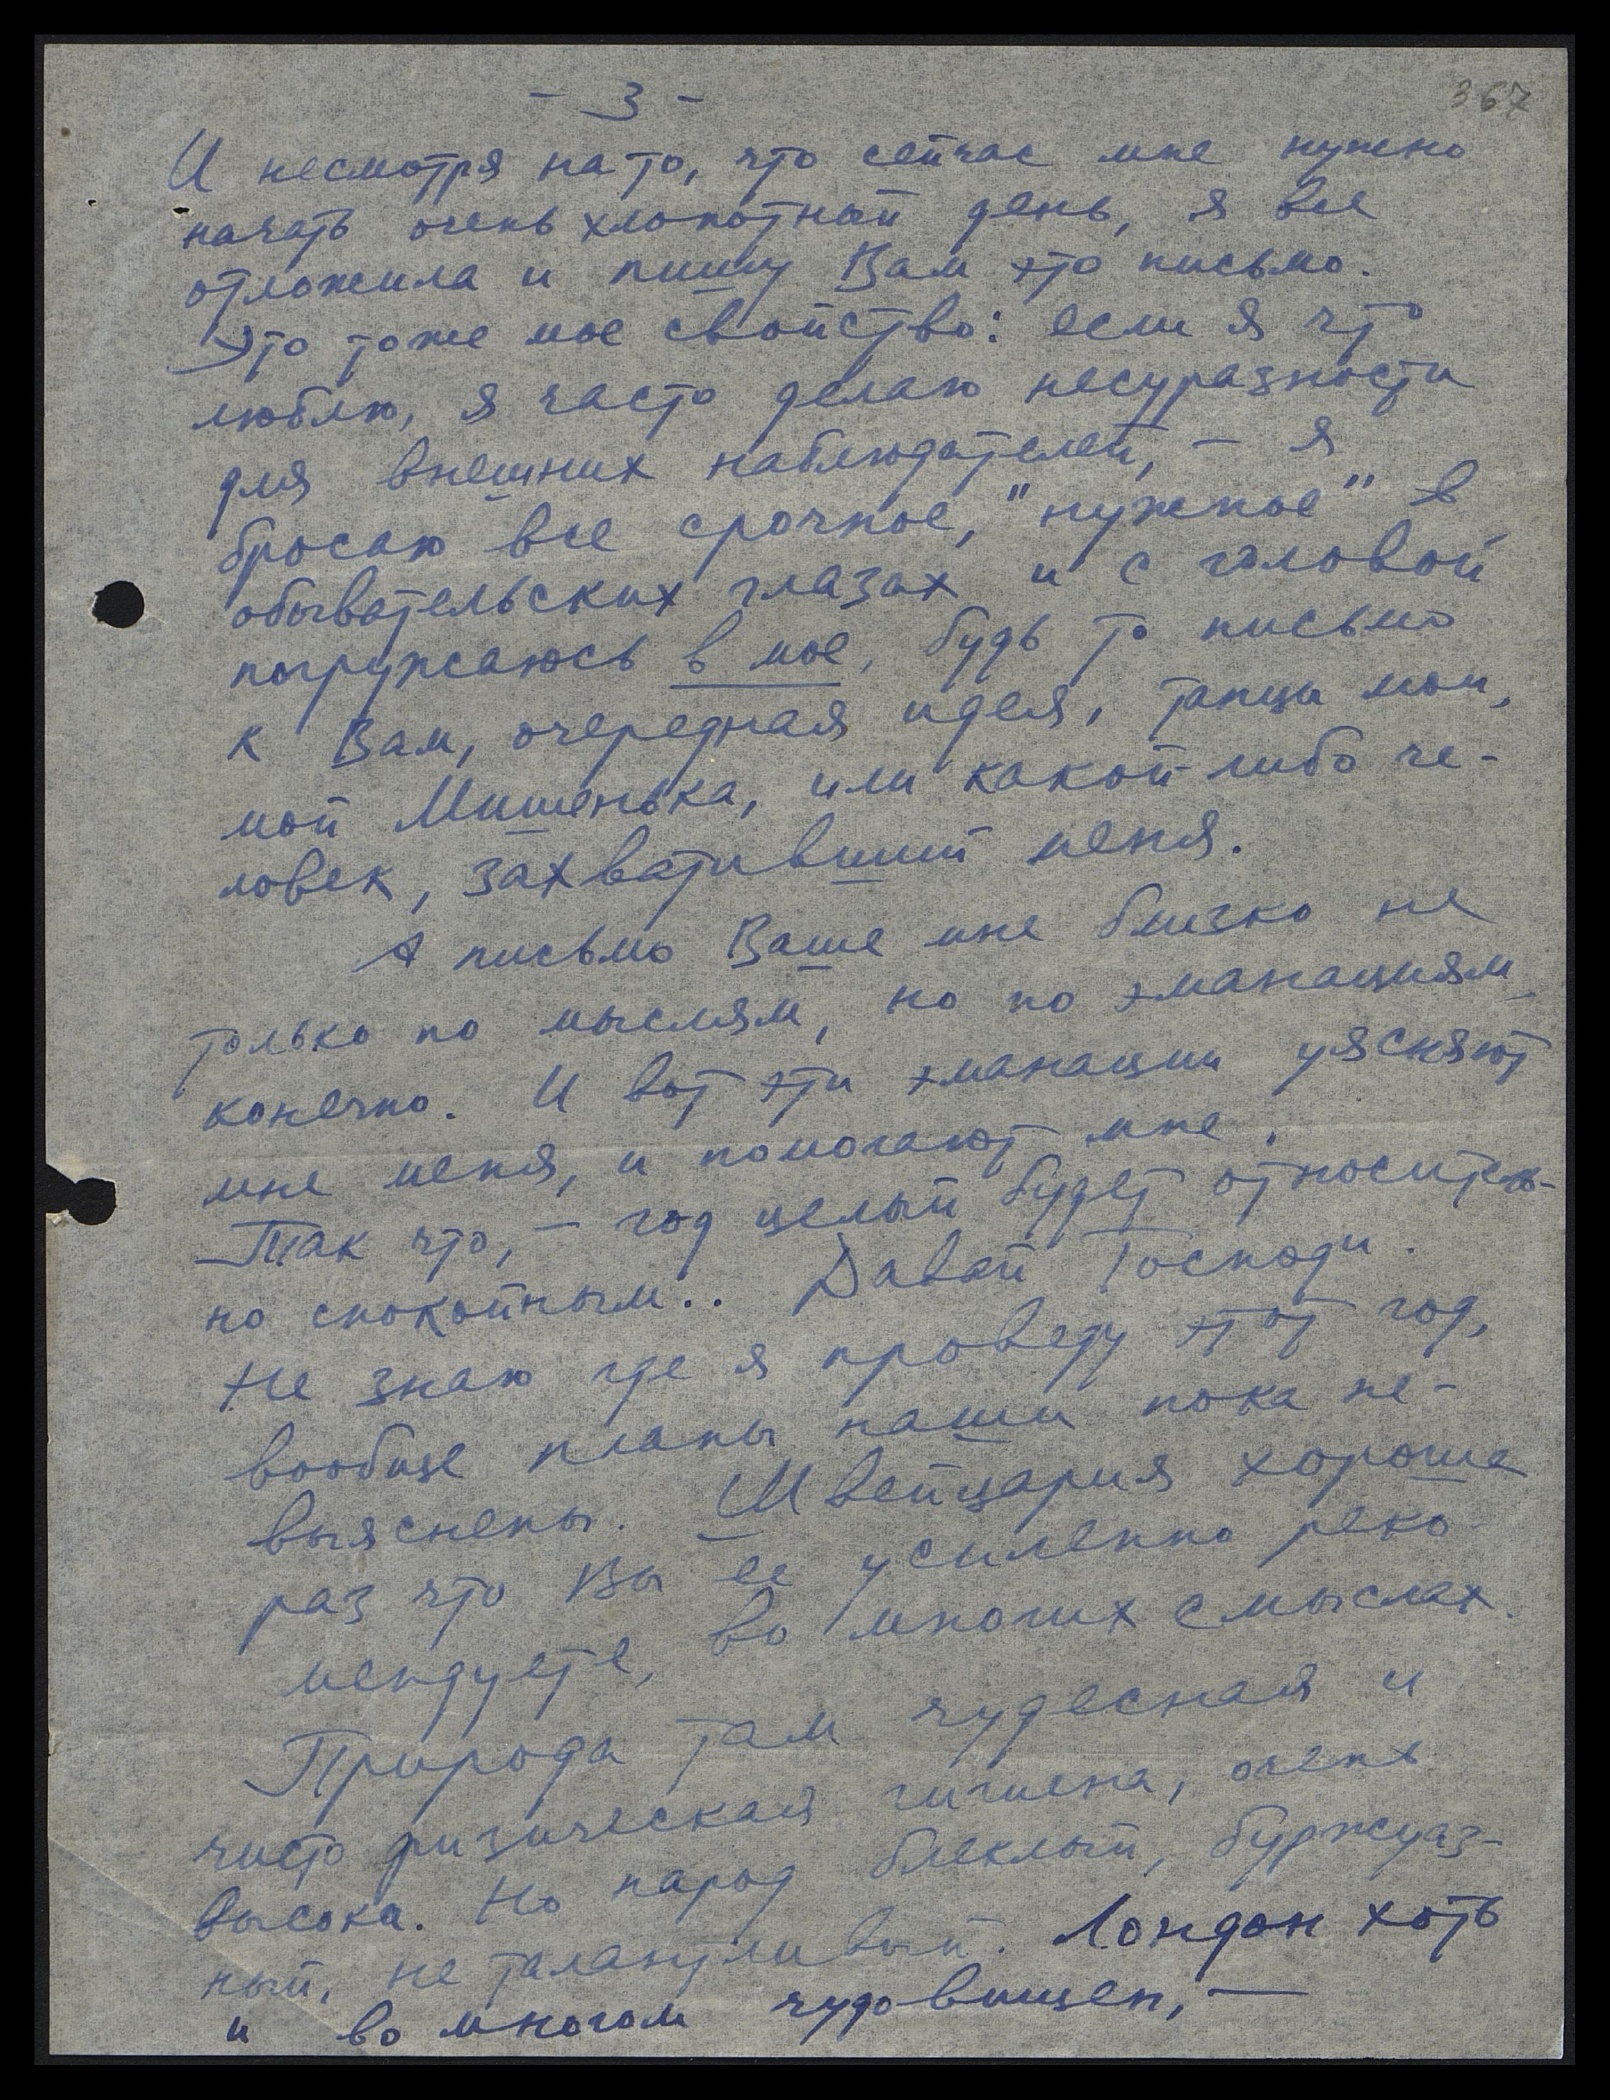 - 3 -
367
И несмотря на то, что сейчас мне нужно
начать очень хлопотный день, я все
отложила и пишу Вам это письмо.
Это тоже мое свойство: если я что
люблю, я часто делаю несуразности
для внешних наблюдателей, – я
бросаю все срочное, "нужное" в
обывательских глазах и с головой
погружаюсь в мое, будь то письмо
к Вам, очередная идея, танцы мои,
мой Мишенька, или какой-либо че-
ловек, захвативший меня.
А письмо Ваше мне близко не
только по мыслям, но по эманациям,
конечно. И вот эти эманации уясняют
мне меня, и помогают мне.
Так что, – год целый будет относитель-
но спокойным.. Давай Господи.
Не знаю где я проведу этот год,
вообще планы наши пока не-
выяснены. Швейцария хороша
раз что Вы ее усиленно реко-
мендуете, во многих смыслах.
Природа там чудесная и
чисто физическая гигиена, очень
высока. Но народ блеклый, буржуаз-
ный, не талантливый. Лондон хоть
и во многом чудовищен, –